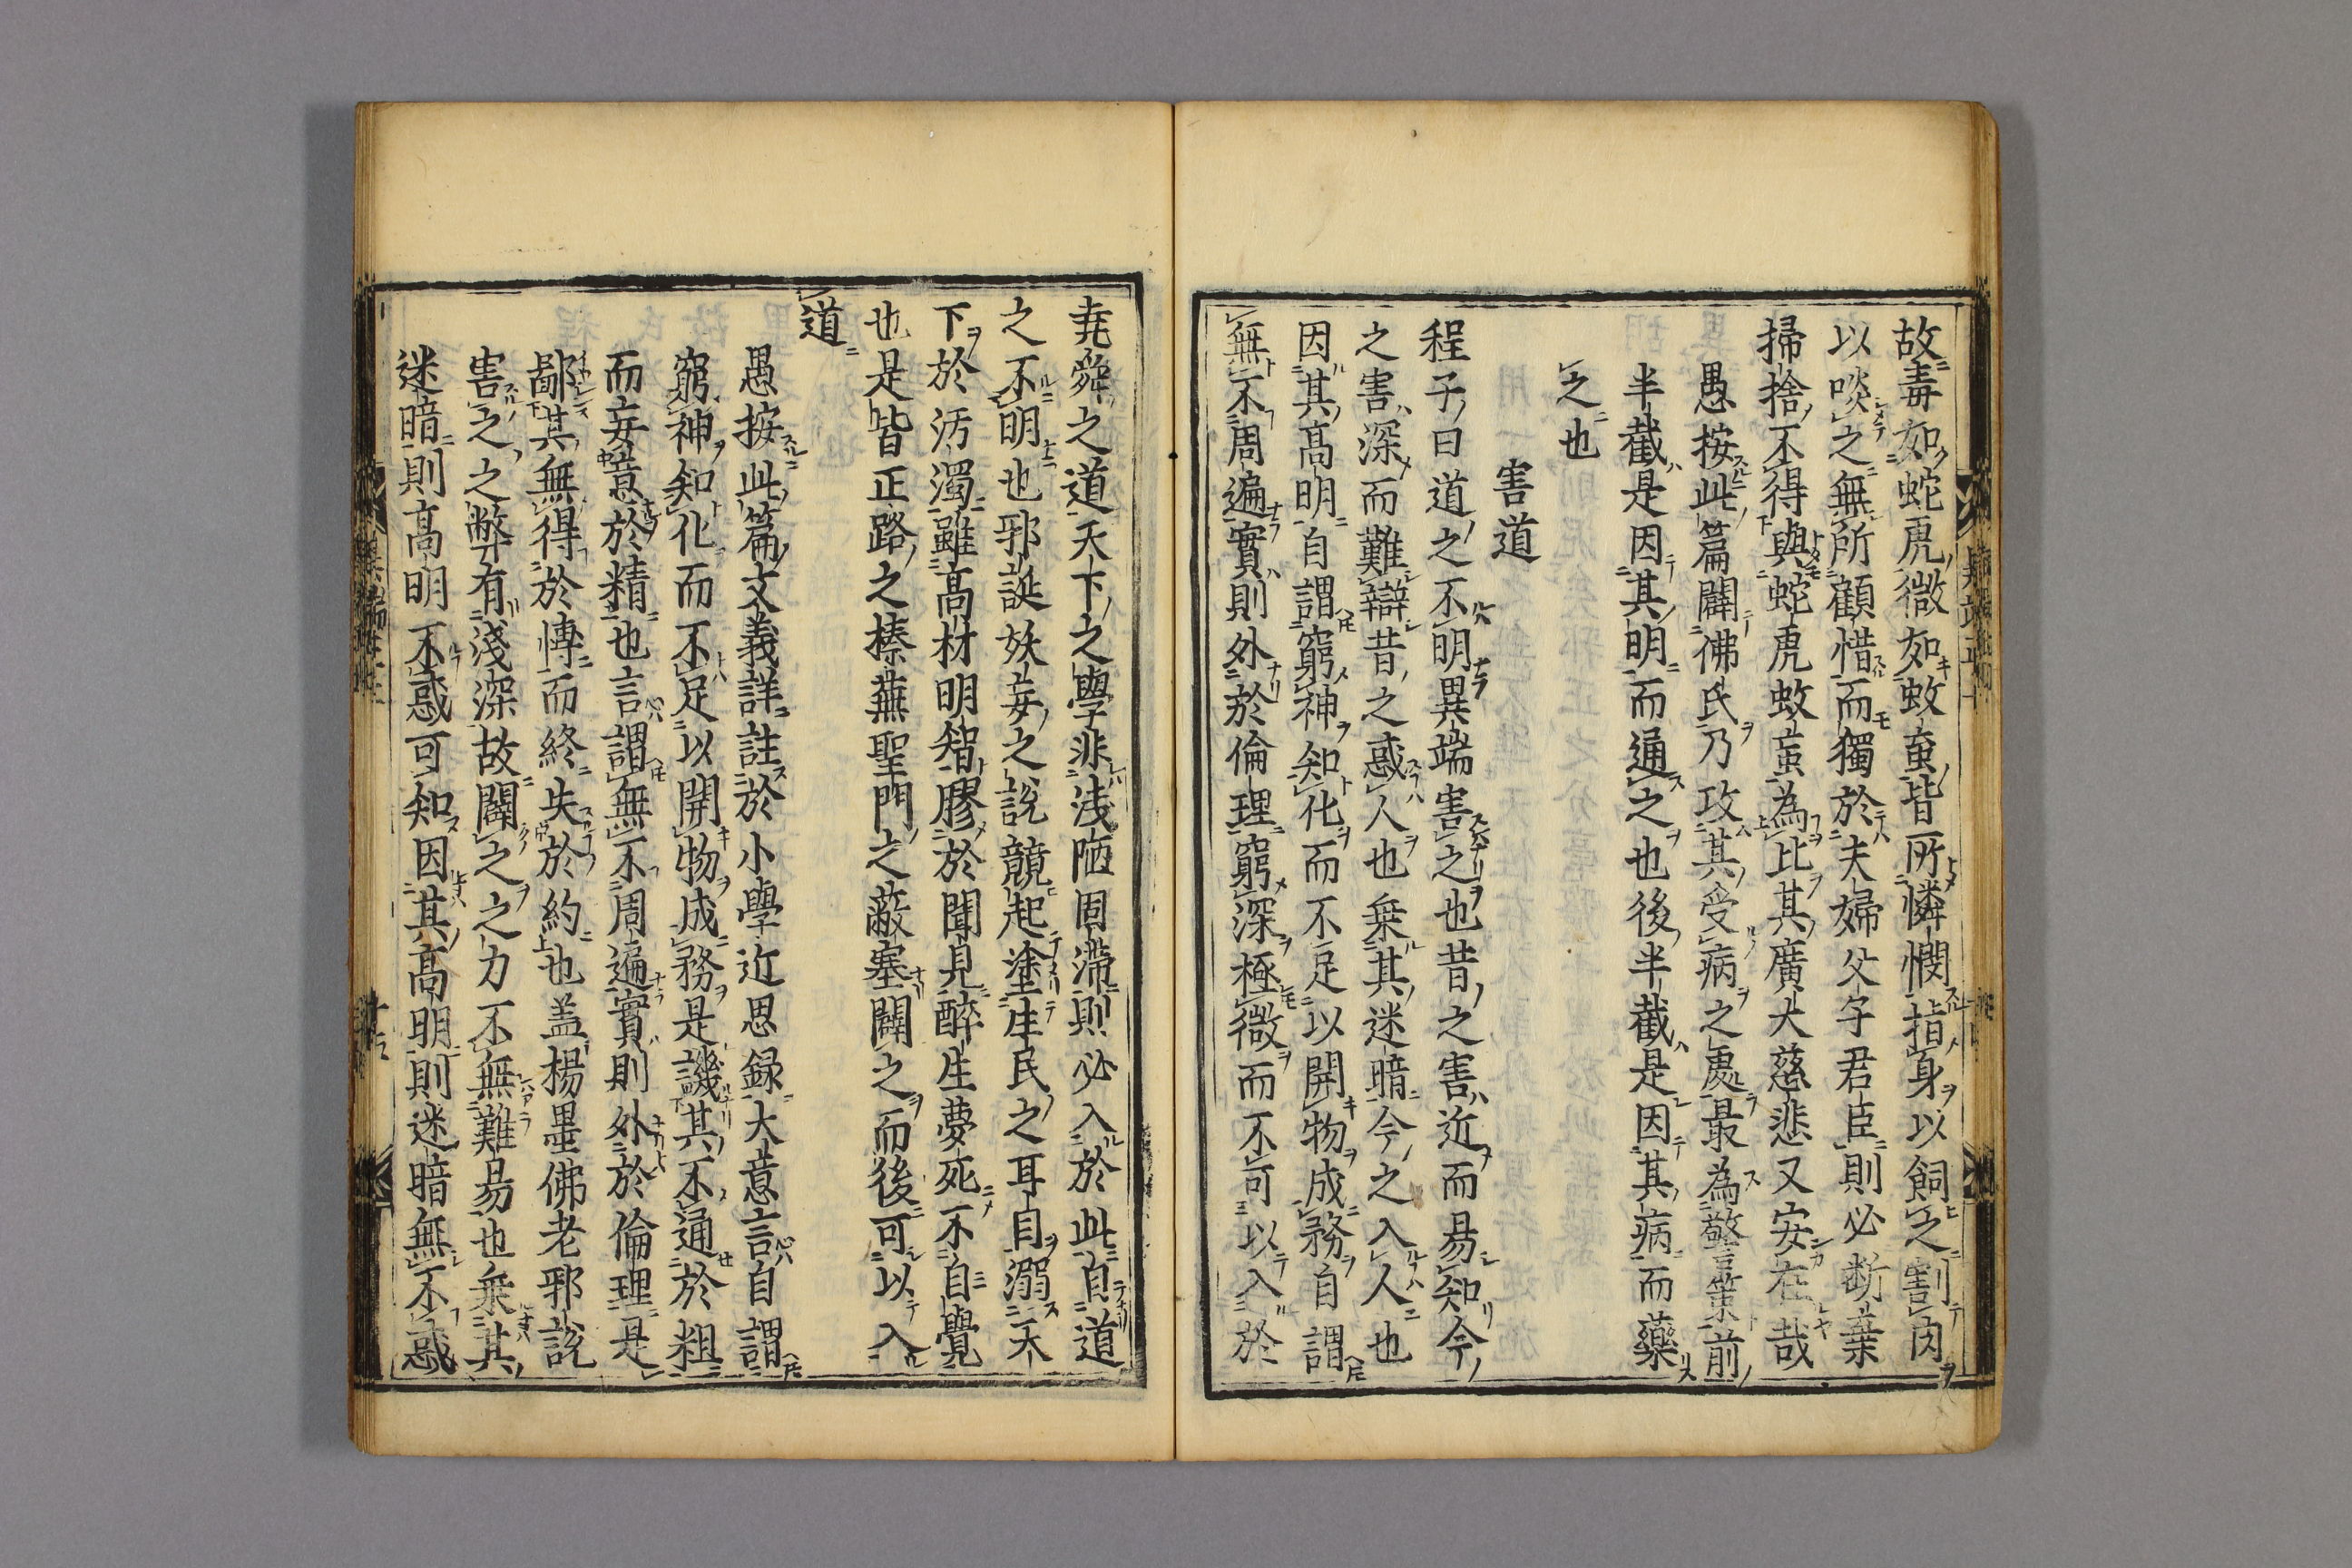 故毒如蛇虎微如蚊䖟皆所憐憫指身以飼之割肉
以啖之無所顧惜而獨於夫婦父子君臣則必断棄
掃捨不得與蛇虎蚊䖟為比其廣大慈悲又安在哉
愚按此篇闢佛氏乃攻其受病之處最為警策前
半截是因其明而通之也後半截是因其病而藥
之也
害道
程子曰道之不明異端害之也昔之害近而易知今
之害深而難辯昔之惑人也乗其迷暗今之入人也
因其髙明自謂窮神知化而不足以開物成務自謂
無不周遍實則外於倫理窮深極微而不可以入於
堯舜之道天下之學非浅陋固滞則必入於此自道
之不明也邪誕妖妄之說競起塗生民之耳目溺天
下於汚濁雖髙材明智膠於聞見醉生夢死不自覺
也是皆正路之榛蕪聖門之蔽塞闢之而後可以入
道
愚按此篇文義詳註於小學近思録大意言自謂
窮神知化而不足以開物成務是譏其不通於粗
而妄意於精也言謂無不周遍實則外於倫理是
鄙其無得於慱而終失於約也盖楊墨佛老邪說
害之之弊有淺深故闢之之力不無難易也乗其
迷暗則髙明不惑可知因其髙明則迷暗無不惑